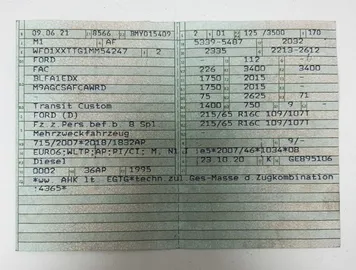 09.06.21 8566 BMY015409
M1 AF
WF01XXTTG1MM54247 2
FORD
FAC
BLFA1EDX
M9AGCSAFCAWRD
Transit Custom
FORD (D)
Fz.z.Pers.bef.b. 8 Spl
Mehrzweckfahrzeug
715/2007*2018/1832AP
EURO6;WLTP;AP;PI/CI; M, N1 I
Diesel
0002 36AP 1995
2 01 125 /3500 170
5339-5487 2032
2335 2213-2612
112
226 3400 3400
1750 2015
1750 2015
75 2625 71
1400 750 9 -
215/65 R16C 109/107T
215/65 R16C 109/107T
9/-
e5*2007/46*1034*08
23.10.20 K GE895106
*ww. AHK lt. EGTG*techn.zul Ges-Masse d.Zugkombination
:4365*